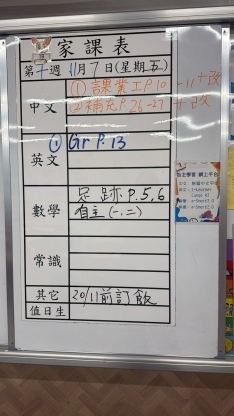 家課表
第十週 11月7日(星期五)
中文
(1) 課業工P.10-11+改
(2) 補充P.26-27+改
英文
① Gr P.13
數學
足跡P.5,6
自主(一.二)
常識
其它
20/11前訂飯
值日生
自主學習 網上平台